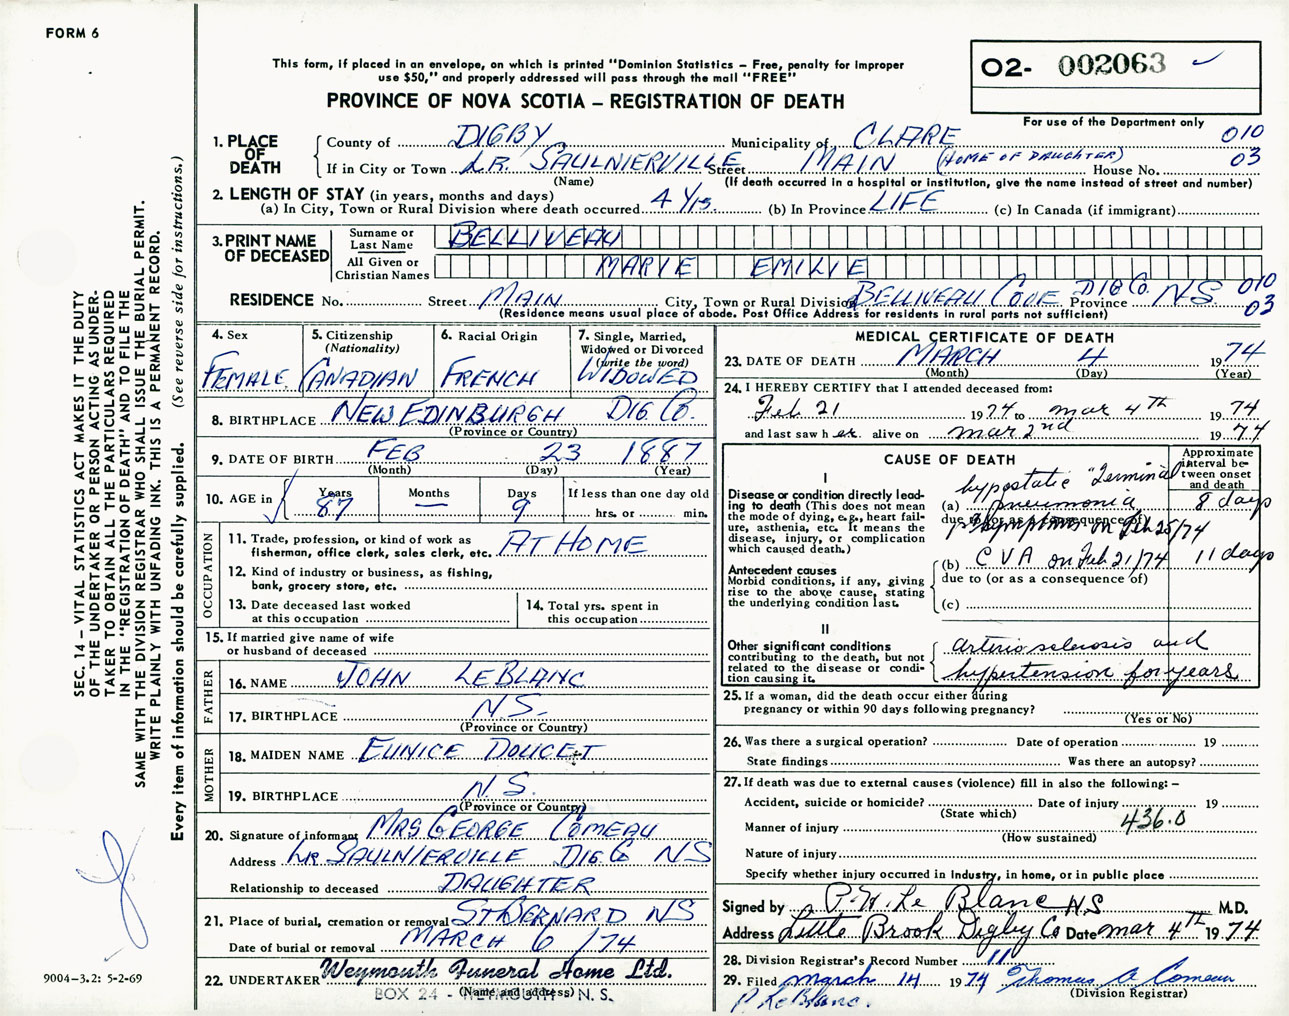 FORM 6
This form, if placed in an envelope, on which is printed "Dominion Statistics – Free, penalty for improper
use $50," and properly addressed will pass through the mail "FREE"
PROVINCE OF NOVA SCOTIA – REGISTRATION OF DEATH
O2- 002063
For use of the Department only
SEC. 14 – VITAL STATISTICS ACT MAKES IT THE DUTY
OF THE UNDERTAKER OR PERSON ACTING AS UNDER-
TAKER TO OBTAIN ALL THE PARTICULARS REQUIRED
IN THE "REGISTRATION OF DEATH" AND TO FILE THE
SAME WITH THE DIVISION REGISTRAR WHO SHALL ISSUE THE BURIAL PERMIT.
WRITE PLAINLY WITH UNFADING INK. THIS IS A PERMANENT RECORD.
Every item of information should be carefully supplied. (See reverse side for instructions.)
1. PLACE OF DEATH
County of DIGBY Municipality of CLARE 010
If in City or Town LR. SAULNIERVILLE Street MAIN (HOME OF DAUGHTER) House No. 03
(Name) (If death occurred in a hospital or institution, give the name instead of street and number)
2. LENGTH OF STAY (in years, months and days)
(a) In City, Town or Rural Division where death occurred 4 Yrs (b) In Province LIFE (c) In Canada (if immigrant)
3. PRINT NAME OF DECEASED
Surname or Last Name BELLIVEAU
All Given or Christian Names MARIE EMILIE
RESIDENCE No. Street MAIN City, Town or Rural Division BELLIVEAU COVE DIG CO. Province NS 010
(Residence means usual place of abode. Post Office Address for residents in rural parts not sufficient) 03
4. Sex FEMALE
5. Citizenship (Nationality) CANADIAN
6. Racial Origin FRENCH
7. Single, Married, Widowed or Divorced (write the word) WIDOWED
8. BIRTHPLACE NEW EDINBURGH DIG CO.
(Province or Country)
9. DATE OF BIRTH FEB 23 1887
(Month) (Day) (Year)
10. AGE in Years 87 Months — Days 9 If less than one day old
hrs. or min.
OCCUPATION
11. Trade, profession, or kind of work as AT HOME
fisherman, office clerk, sales clerk, etc.
12. Kind of industry or business, as fishing,
bank, grocery store, etc.
13. Date deceased last worked
at this occupation
14. Total yrs. spent in
this occupation
15. If married give name of wife
or husband of deceased
FATHER
16. NAME JOHN LEBLANC
17. BIRTHPLACE N.S.
(Province or Country)
MOTHER
18. MAIDEN NAME EUNICE DOUCET
19. BIRTHPLACE N.S.
(Province or Country)
20. Signature of informant MRS. GEORGE COMEAU
Address LR SAULNIERVILLE DIG CO NS
Relationship to deceased DAUGHTER
21. Place of burial, cremation or removal ST BERNARD NS
Date of burial or removal MARCH 6 /74
22. UNDERTAKER Weymouth Funeral Home Ltd.
(Name and address)
BOX 24 - WEYMOUTH N.S.
9004–3.2: 5-2-69
MEDICAL CERTIFICATE OF DEATH
23. DATE OF DEATH MARCH 4 1974
(Month) (Day) (Year)
24. I HEREBY CERTIFY that I attended deceased from:
Feb 21 1974 to mar 4th 1974
and last saw her alive on mar 2nd 1974
CAUSE OF DEATH
Approximate interval between onset and death
I
Disease or condition directly lead-
ing to death (This does not mean
the mode of dying, e.g., heart fail-
ure, asthenia, etc. It means the
disease, injury, or complication
which caused death.)
hypostatic "Terminal
(a) pneumonia 8 days
due to (or as a consequence of)
on Feb 25/74
Antecedent causes
Morbid conditions, if any, giving
rise to the above cause, stating
the underlying condition last.
(b) CVA on Feb 21/74 11 days
due to (or as a consequence of)
(c)
II
Other significant conditions
contributing to the death, but not
related to the disease or condi-
tion causing it.
Arteriosclerosis and
hypertension for years
25. If a woman, did the death occur either during
pregnancy or within 90 days following pregnancy?
(Yes or No)
26. Was there a surgical operation? Date of operation 19
State findings Was there an autopsy?
27. If death was due to external causes (violence) fill in also the following: –
Accident, suicide or homicide? Date of injury 19
(State which)
Manner of injury 436.0
(How sustained)
Nature of injury
Specify whether injury occurred in Industry, in home, or in public place
Signed by P.H. Le Blanc NS M.D.
Address Little Brook Digby Co Date mar 4th 1974
28. Division Registrar's Record Number 11
29. Filed March 14 1974 Thomas A Comeau
(Division Registrar)
P. LeBlanc.